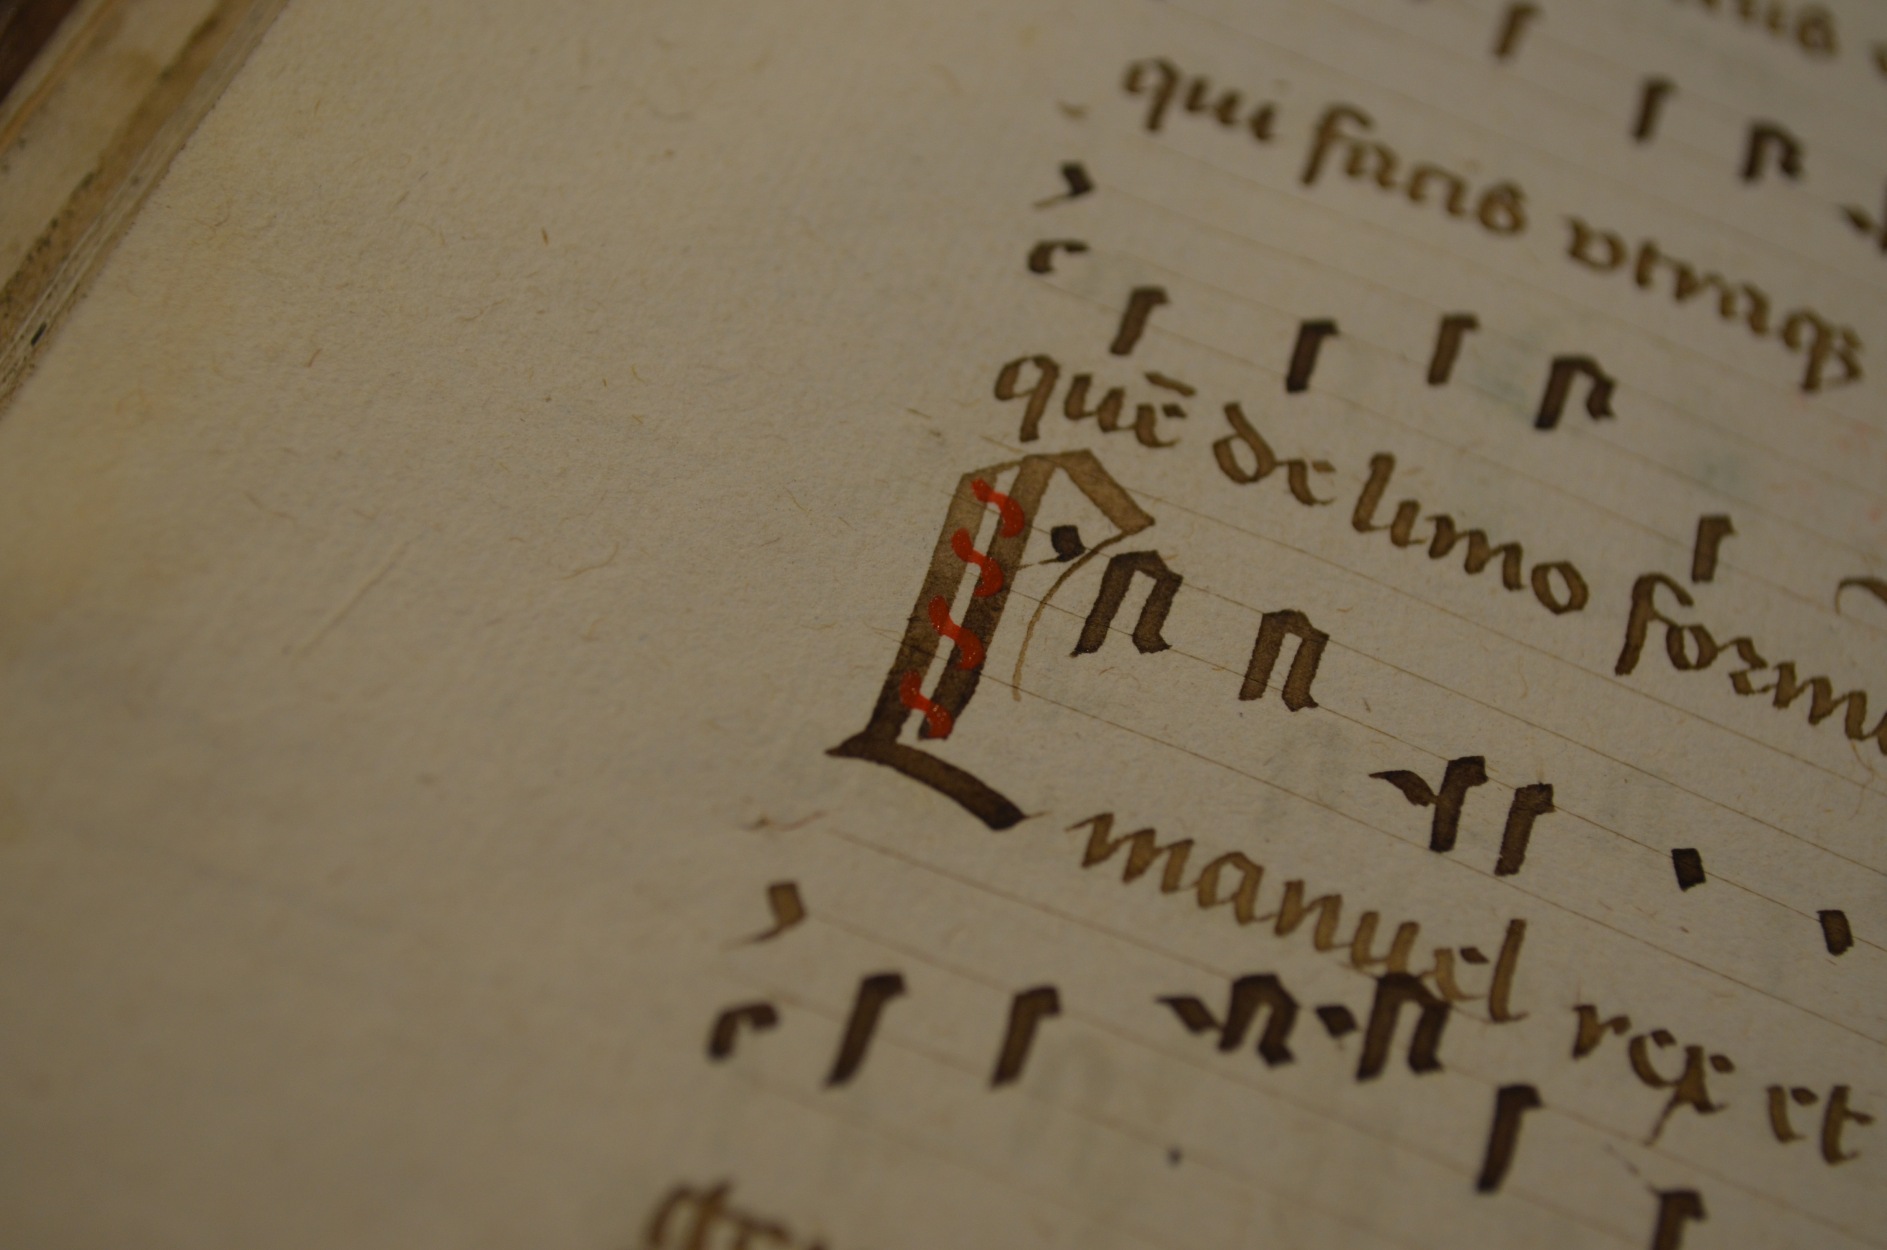 qui facis vtraqꝫ
quē de limo form
Emanuel rex et